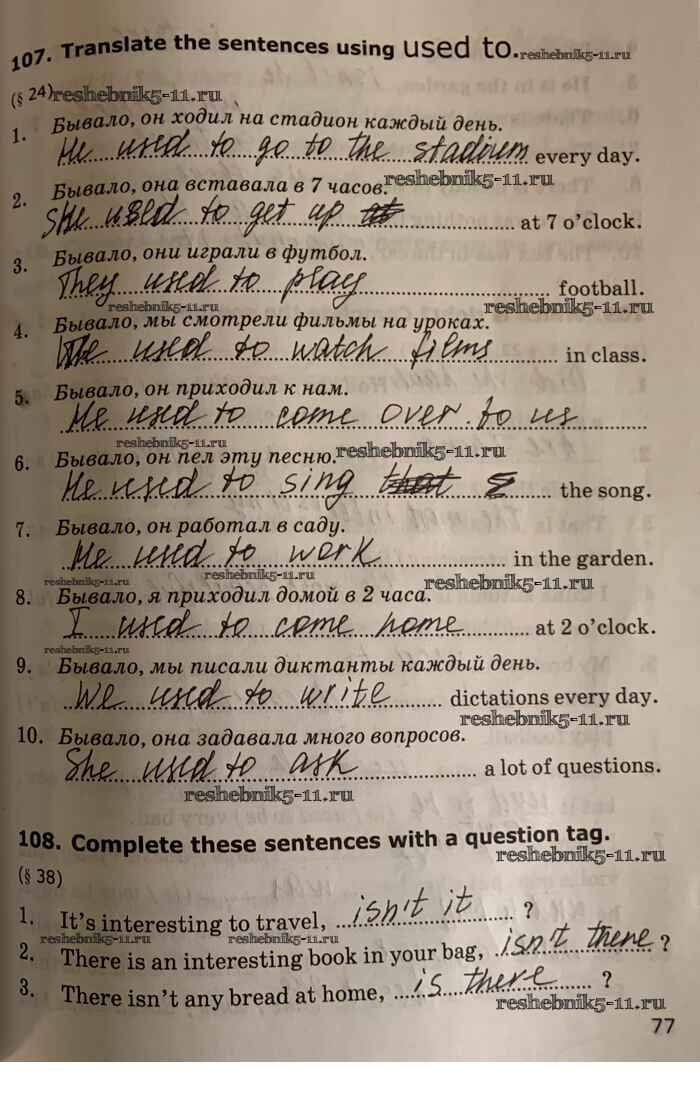 107. Translate the sentences using used to. reshebnik5-11.ru
(§ 24) reshebnik5-11.ru
1. Бывало, он ходил на стадион каждый день.
He used to go to the stadium every day.
2. Бывало, она вставала в 7 часов. reshebnik5-11.ru
She used to get up at 7 o'clock.
3. Бывало, они играли в футбол.
They used to play football.
reshebnik5-11.ru reshebnik5-11.ru
4. Бывало, мы смотрели фильмы на уроках.
We used to watch films in class.
5. Бывало, он приходил к нам.
He used to come over to us
reshebnik5-11.ru
6. Бывало, он пел эту песню. reshebnik5-11.ru
He used to sing that the song.
7. Бывало, он работал в саду.
He used to work in the garden.
reshebnik5-11.ru reshebnik5-11.ru reshebnik5-11.ru
8. Бывало, я приходил домой в 2 часа.
I used to come home at 2 o'clock.
reshebnik5-11.ru
9. Бывало, мы писали диктанты каждый день.
We used to write dictations every day.
reshebnik5-11.ru
10. Бывало, она задавала много вопросов.
She used to ask a lot of questions.
reshebnik5-11.ru
108. Complete these sentences with a question tag.
reshebnik5-11.ru
(§ 38)
1. It's interesting to travel, isn't it ?
reshebnik5-11.ru reshebnik5-11.ru
2. There is an interesting book in your bag, isn't there ?
3. There isn't any bread at home, is there ?
reshebnik5-11.ru
77